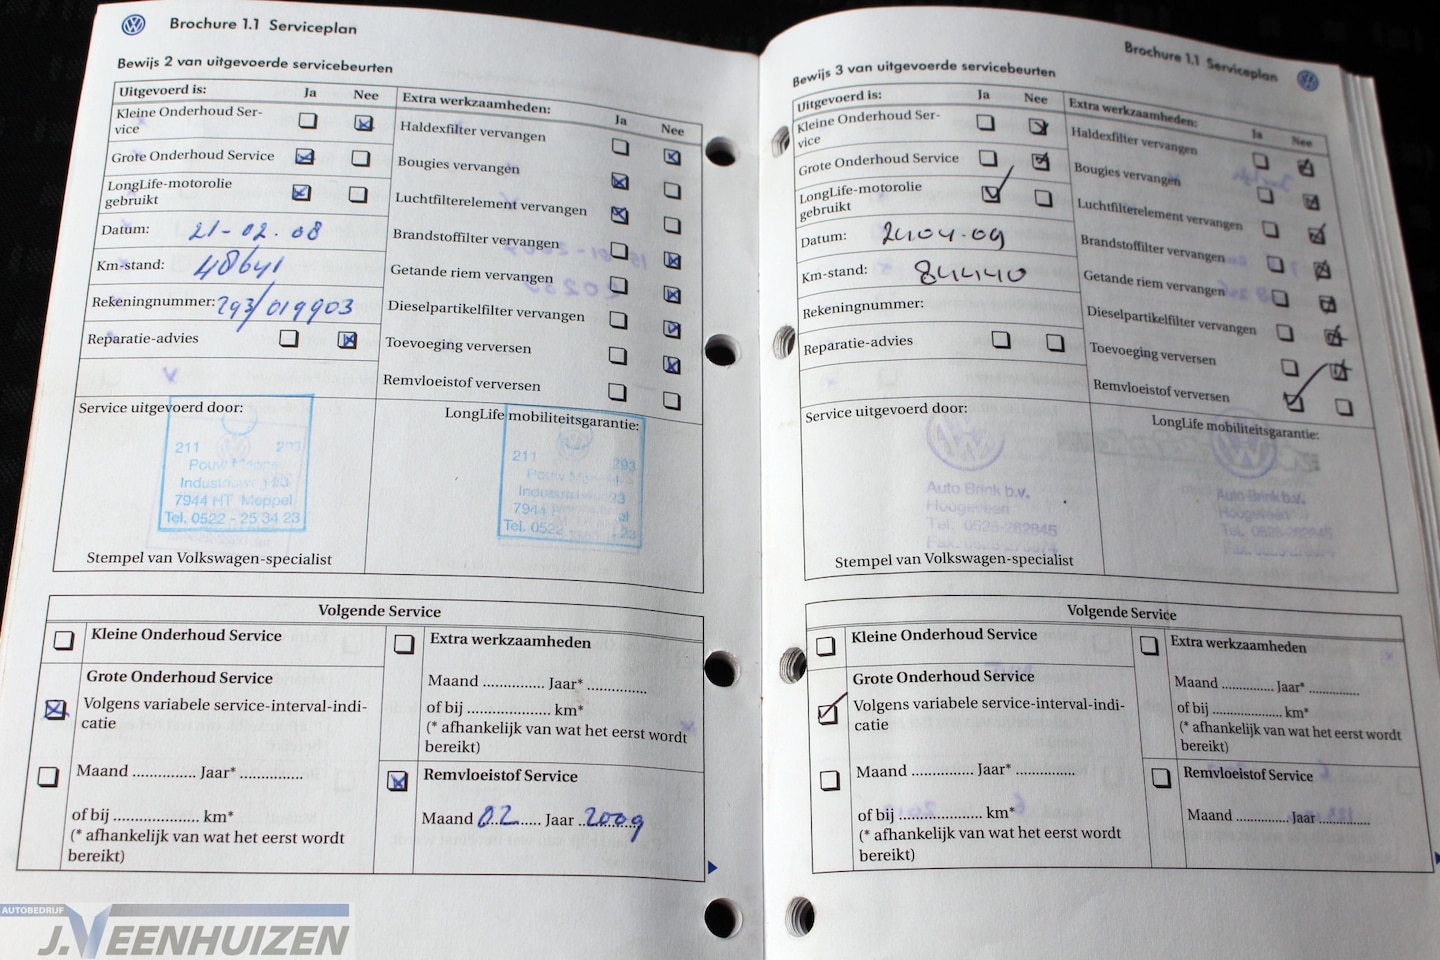 Brochure 1.1 Serviceplan
Bewijs 2 van uitgevoerde servicebeurten
Uitgevoerd is: Ja Nee
Kleine Onderhoud Ser-
vice
Grote Onderhoud Service
LongLife-motorolie
gebruikt
Datum: 21-02-08
Km-stand: 48641
Rekeningnummer: 293/019903
Reparatie-advies
Extra werkzaamheden: Ja Nee
Haldexfilter vervangen
Bougies vervangen
Luchtfilterelement vervangen
Brandstoffilter vervangen
Getande riem vervangen
Dieselpartikelfilter vervangen
Toevoeging verversen
Remvloeistof verversen
Service uitgevoerd door:
211 293
Pouw Meppel
7944 HT Meppel
Tel. 0522 - 25 34 23
Stempel van Volkswagen-specialist
LongLife mobiliteitsgarantie:
211 293
Pouw Meppel
7944
Tel. 0522 23
Volgende Service
Kleine Onderhoud Service
Grote Onderhoud Service
Volgens variabele service-interval-indi-
catie
Maand ............... Jaar* ...............
of bij .................... km*
(* afhankelijk van wat het eerst wordt
bereikt)
Extra werkzaamheden
Maand ............... Jaar* ...............
of bij .................... km*
(* afhankelijk van wat het eerst wordt
bereikt)
Remvloeistof Service
Maand 02 Jaar 2009
Brochure 1.1 Serviceplan
Bewijs 3 van uitgevoerde servicebeurten
Uitgevoerd is: Ja Nee
Kleine Onderhoud Ser-
vice
Grote Onderhoud Service
LongLife-motorolie
gebruikt
Datum: 24.04.09
Km-stand: 84440
Rekeningnummer:
Reparatie-advies
Extra werkzaamheden: Ja Nee
Haldexfilter vervangen
Bougies vervangen
Luchtfilterelement vervangen
Brandstoffilter vervangen
Getande riem vervangen
Dieselpartikelfilter vervangen
Toevoeging verversen
Remvloeistof verversen
Service uitgevoerd door:
Auto Brink b.v.
Hoogeveen
Tel. 0528-262845
Stempel van Volkswagen-specialist
LongLife mobiliteitsgarantie:
Auto Brink b.v.
Hoogeveen
Tel. 0528-262845
Volgende Service
Kleine Onderhoud Service
Grote Onderhoud Service
Volgens variabele service-interval-indi-
catie
Maand ............... Jaar* ...............
of bij .................... km*
(* afhankelijk van wat het eerst wordt
bereikt)
Extra werkzaamheden
Maand ............... Jaar* ...............
of bij .................... km*
(* afhankelijk van wat het eerst wordt
bereikt)
Remvloeistof Service
Maand ............... Jaar ...............
AUTOBEDRIJF
J.VEENHUIZEN